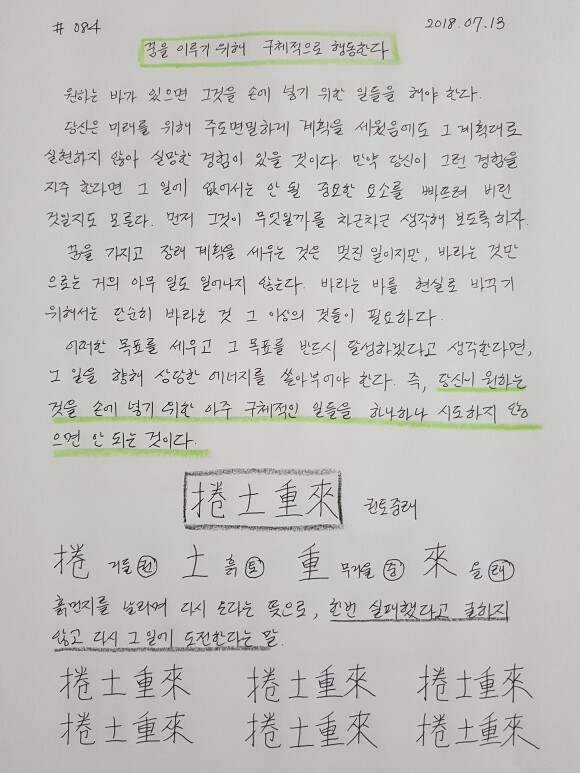 # 084 2018.07.13
꿈을 이루기 위해 구체적으로 행동한다
원하는 바가 있으면 그것을 손에 넣기 위한 일들을 해야 한다.
당신은 미래를 위해 주도면밀하게 계획을 세웠음에도 그 계획대로
실현하지 않아 실망한 경험이 있을 것이다. 만약 당신이 그런 경험을
자주 한다면 그 일에 없어서는 안 될 중요한 요소를 빠뜨려 버린
것일지도 모른다. 먼저 그것이 무엇일까를 차근차근 생각해 보도록 하자.
꿈을 가지고 장래 계획을 세우는 것은 멋진 일이지만, 바라는 것만
으로는 거의 아무 일도 일어나지 않는다. 바라는 바를 현실로 바꾸기
위해서는 단순히 바라는 것 그 이상의 것들이 필요하다.
어떠한 목표를 세우고 그 목표를 반드시 달성하겠다고 생각한다면,
그 일을 향해 상당한 에너지를 쏟아부어야 한다. 즉, 당신이 원하는
것을 손에 넣기 위한 아주 구체적인 일들을 하나하나 시도하지 않
으면 안 되는 것이다.
捲土重來 권토중래
捲 거둘 권 土 흙 토 重 무거울 중 來 올 래
흙먼지를 날리며 다시 온다는 뜻으로, 한번 실패했다고 굴하지
않고 다시 그 일에 도전한다는 말.
捲土重來 捲土重來 捲土重來
捲土重來 捲土重來 捲土重來